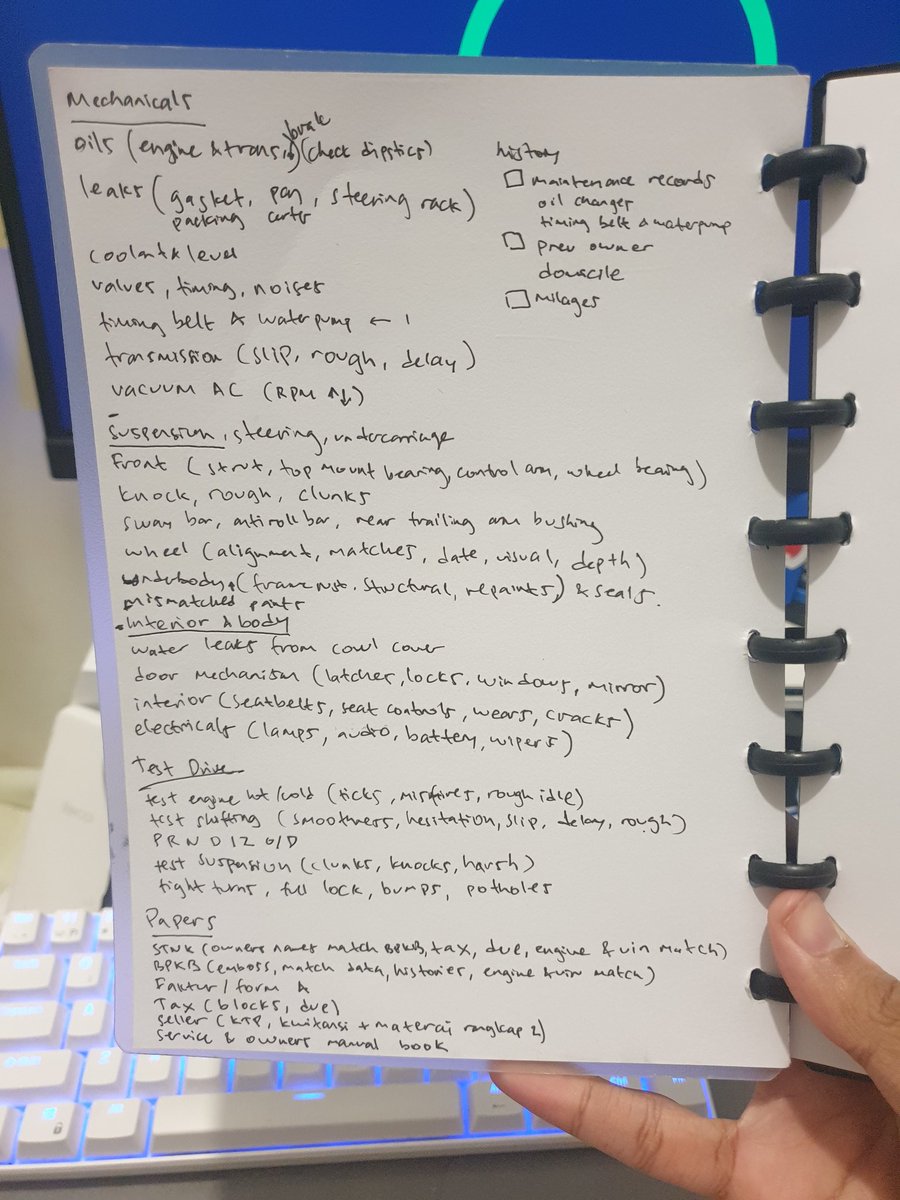 Mechanicals
oils (engine & trans, brake) (check dipstics)
leaks (gasket, pan, steering rack)
packing carter
coolant & level
valves, timing, noises
timing belt & waterpump ←
transmission (slip, rough, delay)
vacuum AC (RPM ↑↓)
history
□ maintenance records
oil changes
timing belt & waterpump
□ prev owner
domscile
□ Milages
Suspension, steering, undercarriage
Front (strut, top mount bearing, control arm, wheel bearing)
knock, rough, clunks
sway bar, antiroll bar, rear trailing arm bushing
wheel (alignment, matches, date, visual, depth)
underbody, (frame rust, structural, repaints,) & seals.
mismatched paints
Interior & body
water leaks from cowl cover
door mechanism (latches, locks, windows, mirror)
interior (seatbelts, seat controls, wears, cracks)
electricals (lamps, audio, battery, wipers)
Test Drive
test engine hot/cold (ticks, misfires, rough idle)
test shifting (smoothness, hesitation, slip, delay, rough)
PRND12 O/D
test suspension (clunks, knocks, harsh)
tight turns, full lock, bumps, potholes
Papers
STNK (owners names match BPKB, tax, due, engine & vin match)
BPKB (emboss, match data, histories, engine & vin match)
Faktur / form A
Tax (blocks, due)
seller (KTP, kwitansi + materai rangkap 2)
service & owners manual book